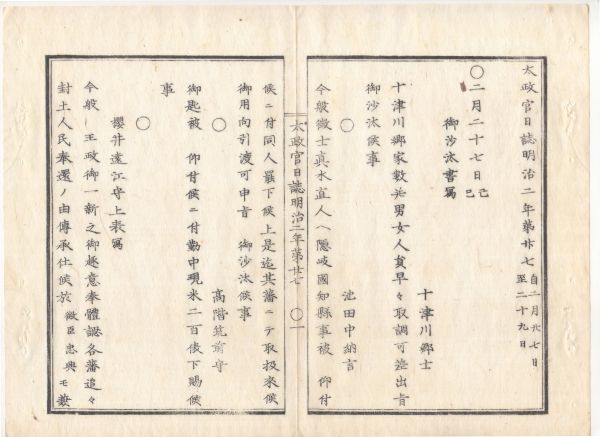 太政官日誌明治二年第廿七
自二月廿七日
至二十九日
〇二月二十七日己巳
御沙汰書寫
十津川郷士
十津川郷家數並男女人員早々取調可差出旨
御沙汰候事
〇
池田中納言
今般徴士真木直人ヘ隠岐國知縣事被 仰付
太政官日誌明治二年第廿七 〇一
候ニ付同人罷下候上是迄其藩ニテ取扱來候
御用向引渡可申旨 御沙汰候事
〇
高階筑前守
御匙被 仰付候ニ付勤中現米二百俵下賜候
事
〇
櫻井遠江守上表寫
今般 王政御一新之御趣意奉體認各藩追々
封土人民奉還ノ由傳承仕候故 微臣忠興モ兼